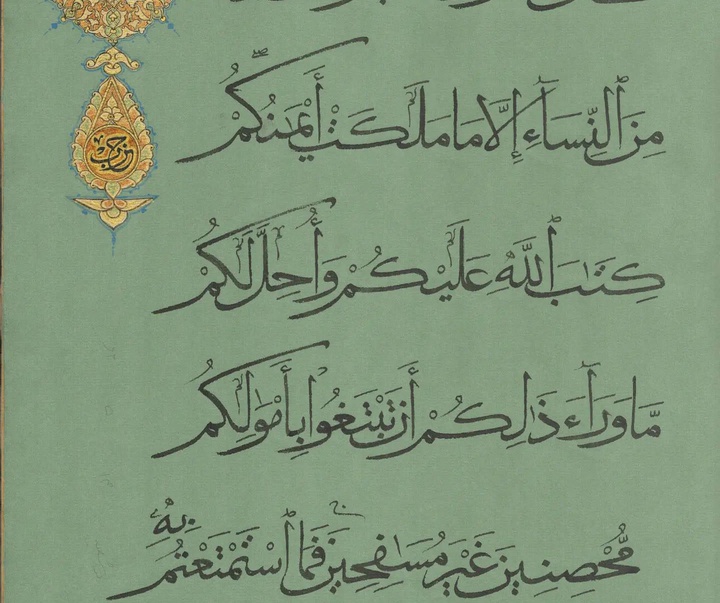 مِنَ ٱلنِّسَآءِ إِلَّا مَا مَلَكَتْ أَيْمَٰنُكُمْ
كِتَٰبَ ٱللَّهِ عَلَيْكُمْ وَأُحِلَّ لَكُمْ
مَّا وَرَآءَ ذَٰلِكُمْ أَن تَبْتَغُوا۟ بِأَمْوَٰلِكُم
مُّحْصِنِينَ غَيْرَ مُسَٰفِحِينَ فَمَا ٱسْتَمْتَعْتُم
بِهِۦ